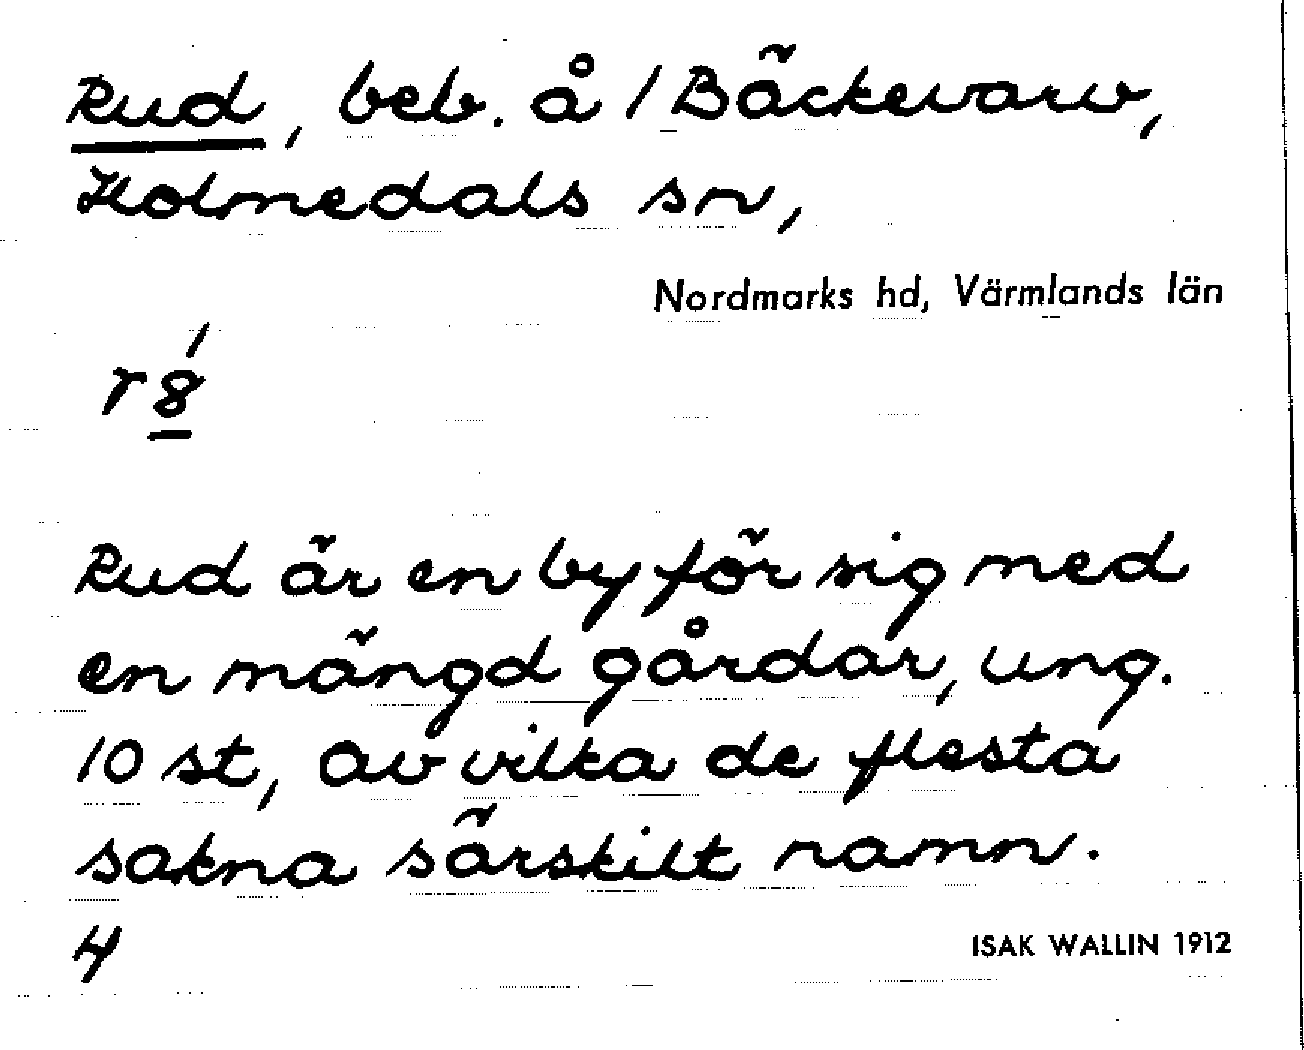 Rud, beb. å 1 Bäckevarv,
Holmedals sn,
Nordmarks hd, Värmlands län
r 8́
Rud är en by för sig med
en mängd gårdar, ung.
10 st, av vilka de flesta
sakna särskilt namn.
4
ISAK WALLIN 1912